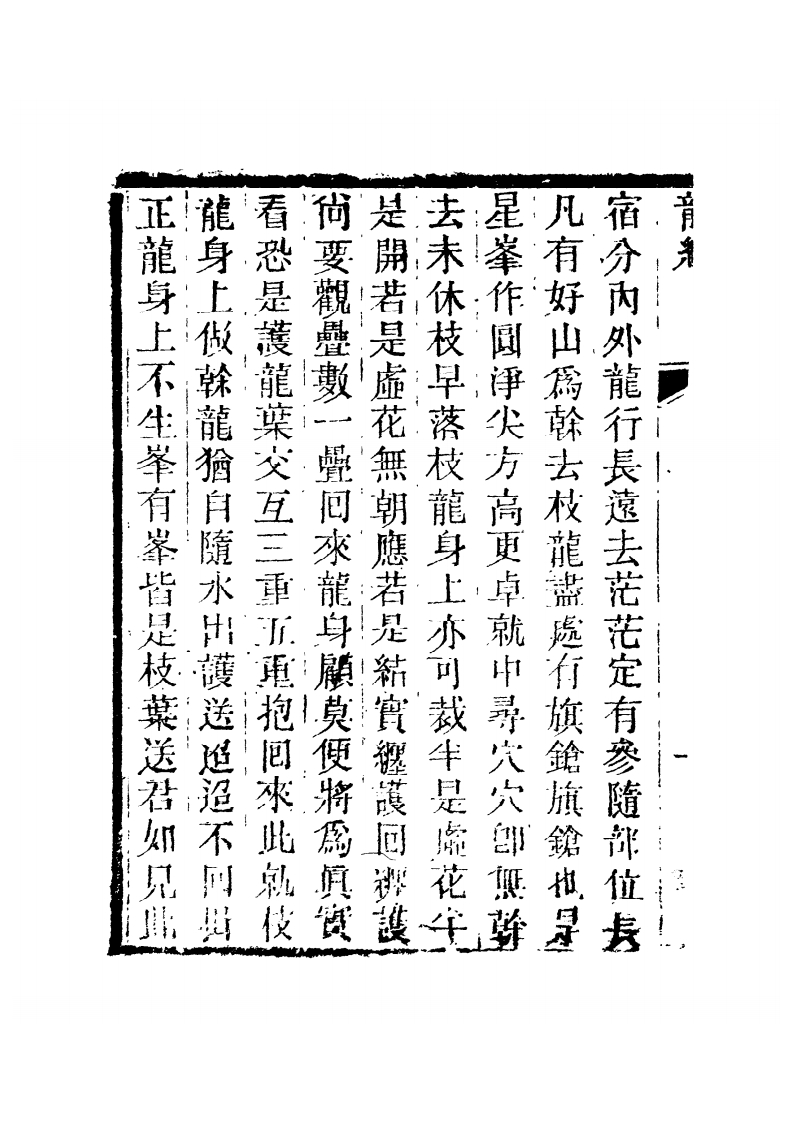 宿分內外龍行長遠去茫茫定有參隨部位長
凡有好山為榦去枝龍盡處有旗鎗旗鎗也是
星峯作圓淨尖方高更卓就中尋穴穴卽無榦
去未休枝早落枝龍身上亦可裁半是虛花半
是開若是虛花無朝應若是結實纏護回纏護
尙要觀疊數一疊回來龍身顧莫便將為眞實
看恐是護龍葉交互三重五重抱回來此就枝
龍身上做榦龍猶自隨水出護送迢迢不回
正龍身上不生峯有峯皆是枝葉送君如見此
一